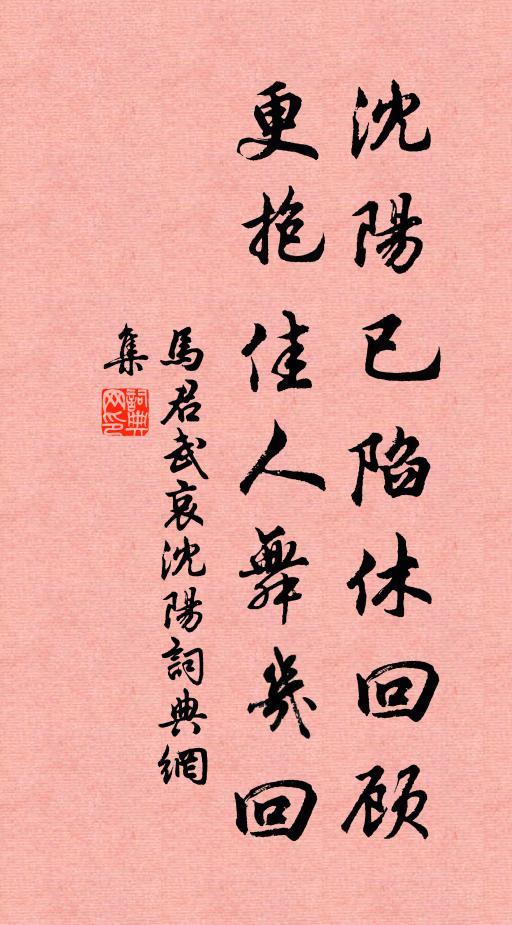 沈陽已陷休回顾
更抱佳人舞幾回
馬君武哀沈陽詞典網
集
詞典
网印